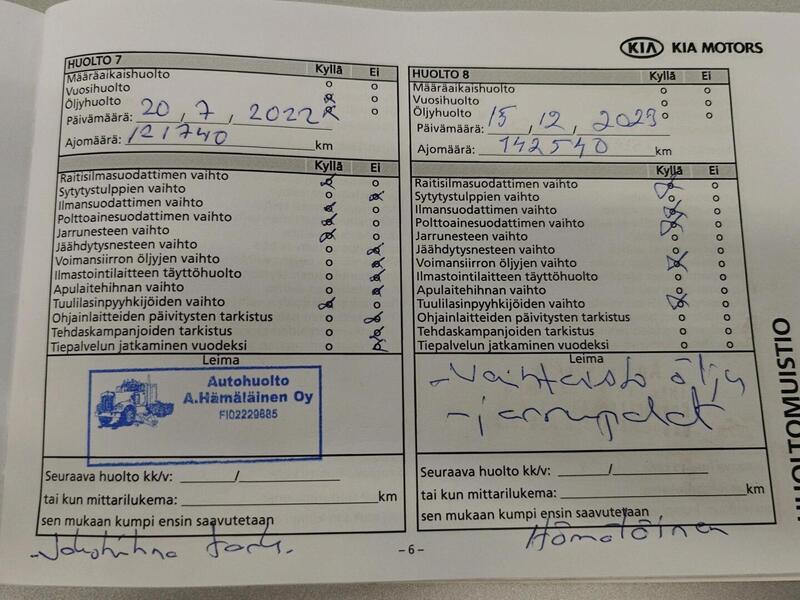 KIA KIA MOTORS
HUOLTO 7
Kyllä Ei
Määräaikaishuolto
Vuosihuolto
Öljyhuolto
Päivämäärä: 20 , 7 , 2022
Ajomäärä: 121740 km
Kyllä Ei
Raitisilmasuodattimen vaihto
Sytytystulppien vaihto
Ilmansuodattimen vaihto
Polttoainesuodattimen vaihto
Jarrunesteen vaihto
Jäähdytysnesteen vaihto
Voimansiirron öljyjen vaihto
Ilmastointilaitteen täyttöhuolto
Apulaitehihnan vaihto
Tuulilasinpyyhkijöiden vaihto
Ohjainlaitteiden päivitysten tarkistus
Tehdaskampanjoiden tarkistus
Tiepalvelun jatkaminen vuodeksi
Leima
Autohuolto
A.Hämäläinen Oy
FI02229885
Seuraava huolto kk/v: /
tai kun mittarilukema: km
sen mukaan kumpi ensin saavutetaan
HUOLTO 8
Kyllä Ei
Määräaikaishuolto
Vuosihuolto
Öljyhuolto
Päivämäärä: 15 , 12 , 2023
Ajomäärä: 142540 km
Kyllä Ei
Raitisilmasuodattimen vaihto
Sytytystulppien vaihto
Ilmansuodattimen vaihto
Polttoainesuodattimen vaihto
Jarrunesteen vaihto
Jäähdytysnesteen vaihto
Voimansiirron öljyjen vaihto
Ilmastointilaitteen täyttöhuolto
Apulaitehihnan vaihto
Tuulilasinpyyhkijöiden vaihto
Ohjainlaitteiden päivitysten tarkistus
Tehdaskampanjoiden tarkistus
Tiepalvelun jatkaminen vuodeksi
Leima
-Vaihteisto öljy
-jarrupalat
Seuraava huolto kk/v: /
tai kun mittarilukema: km
sen mukaan kumpi ensin saavutetaan
Hämäläinen
-Jakohihna
– 6 –
HUOLTOMUISTIO